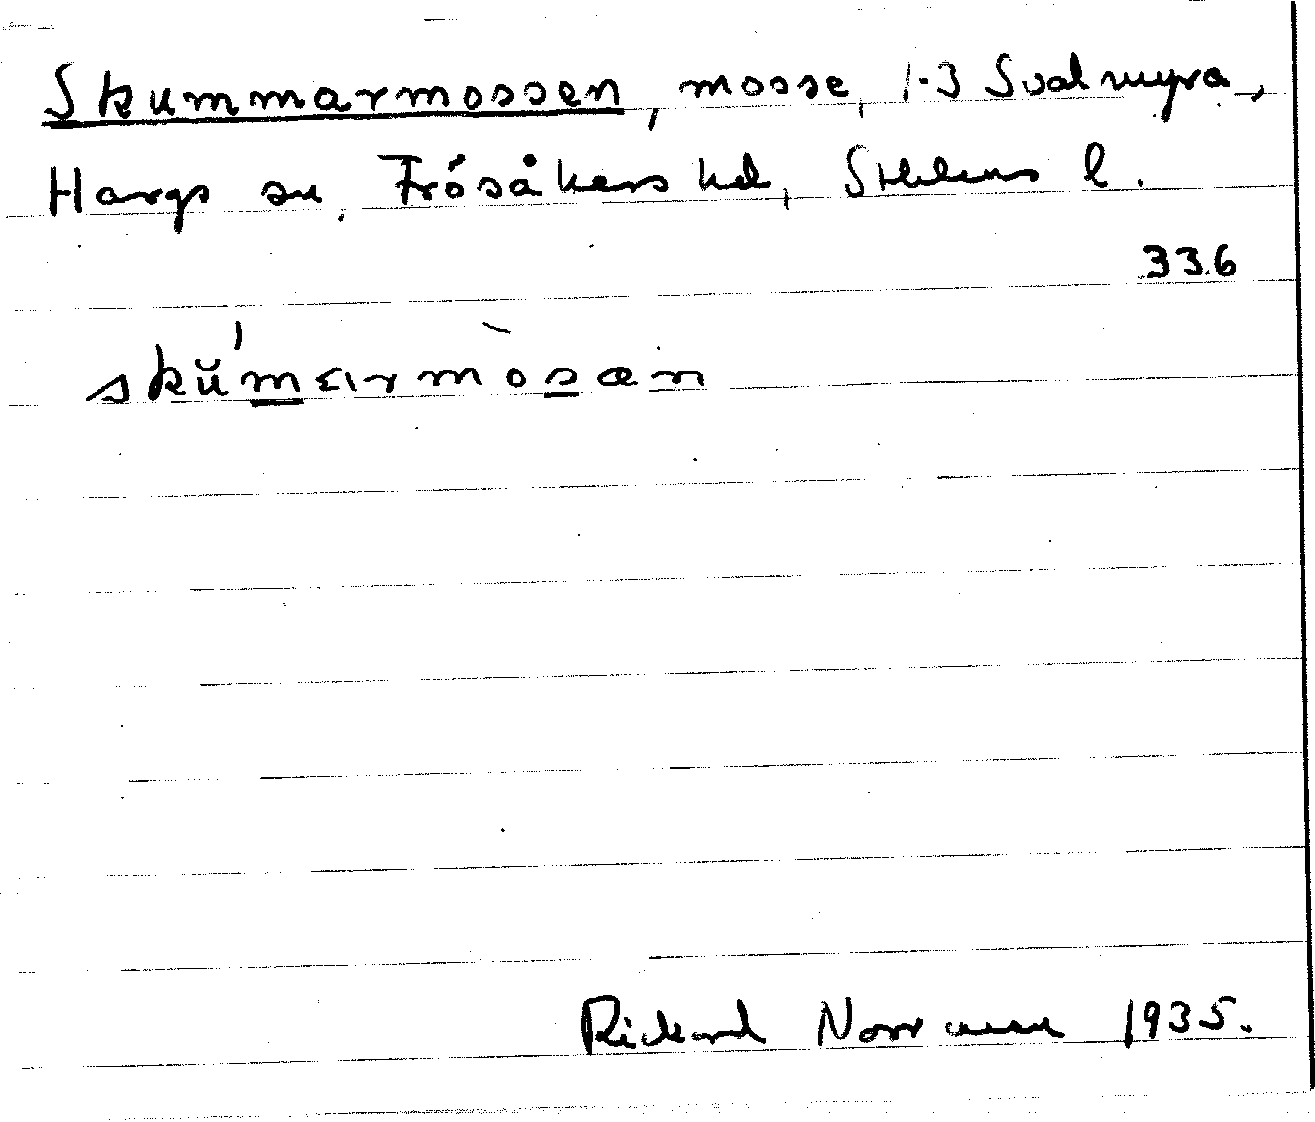 Skummarmossen, mosse, 1-3 Svalmyra,
Hargs sn, Frösåkers hd, Sthlms l.
336
skŭ'marmòsæn
Rickard Norrman 1935.